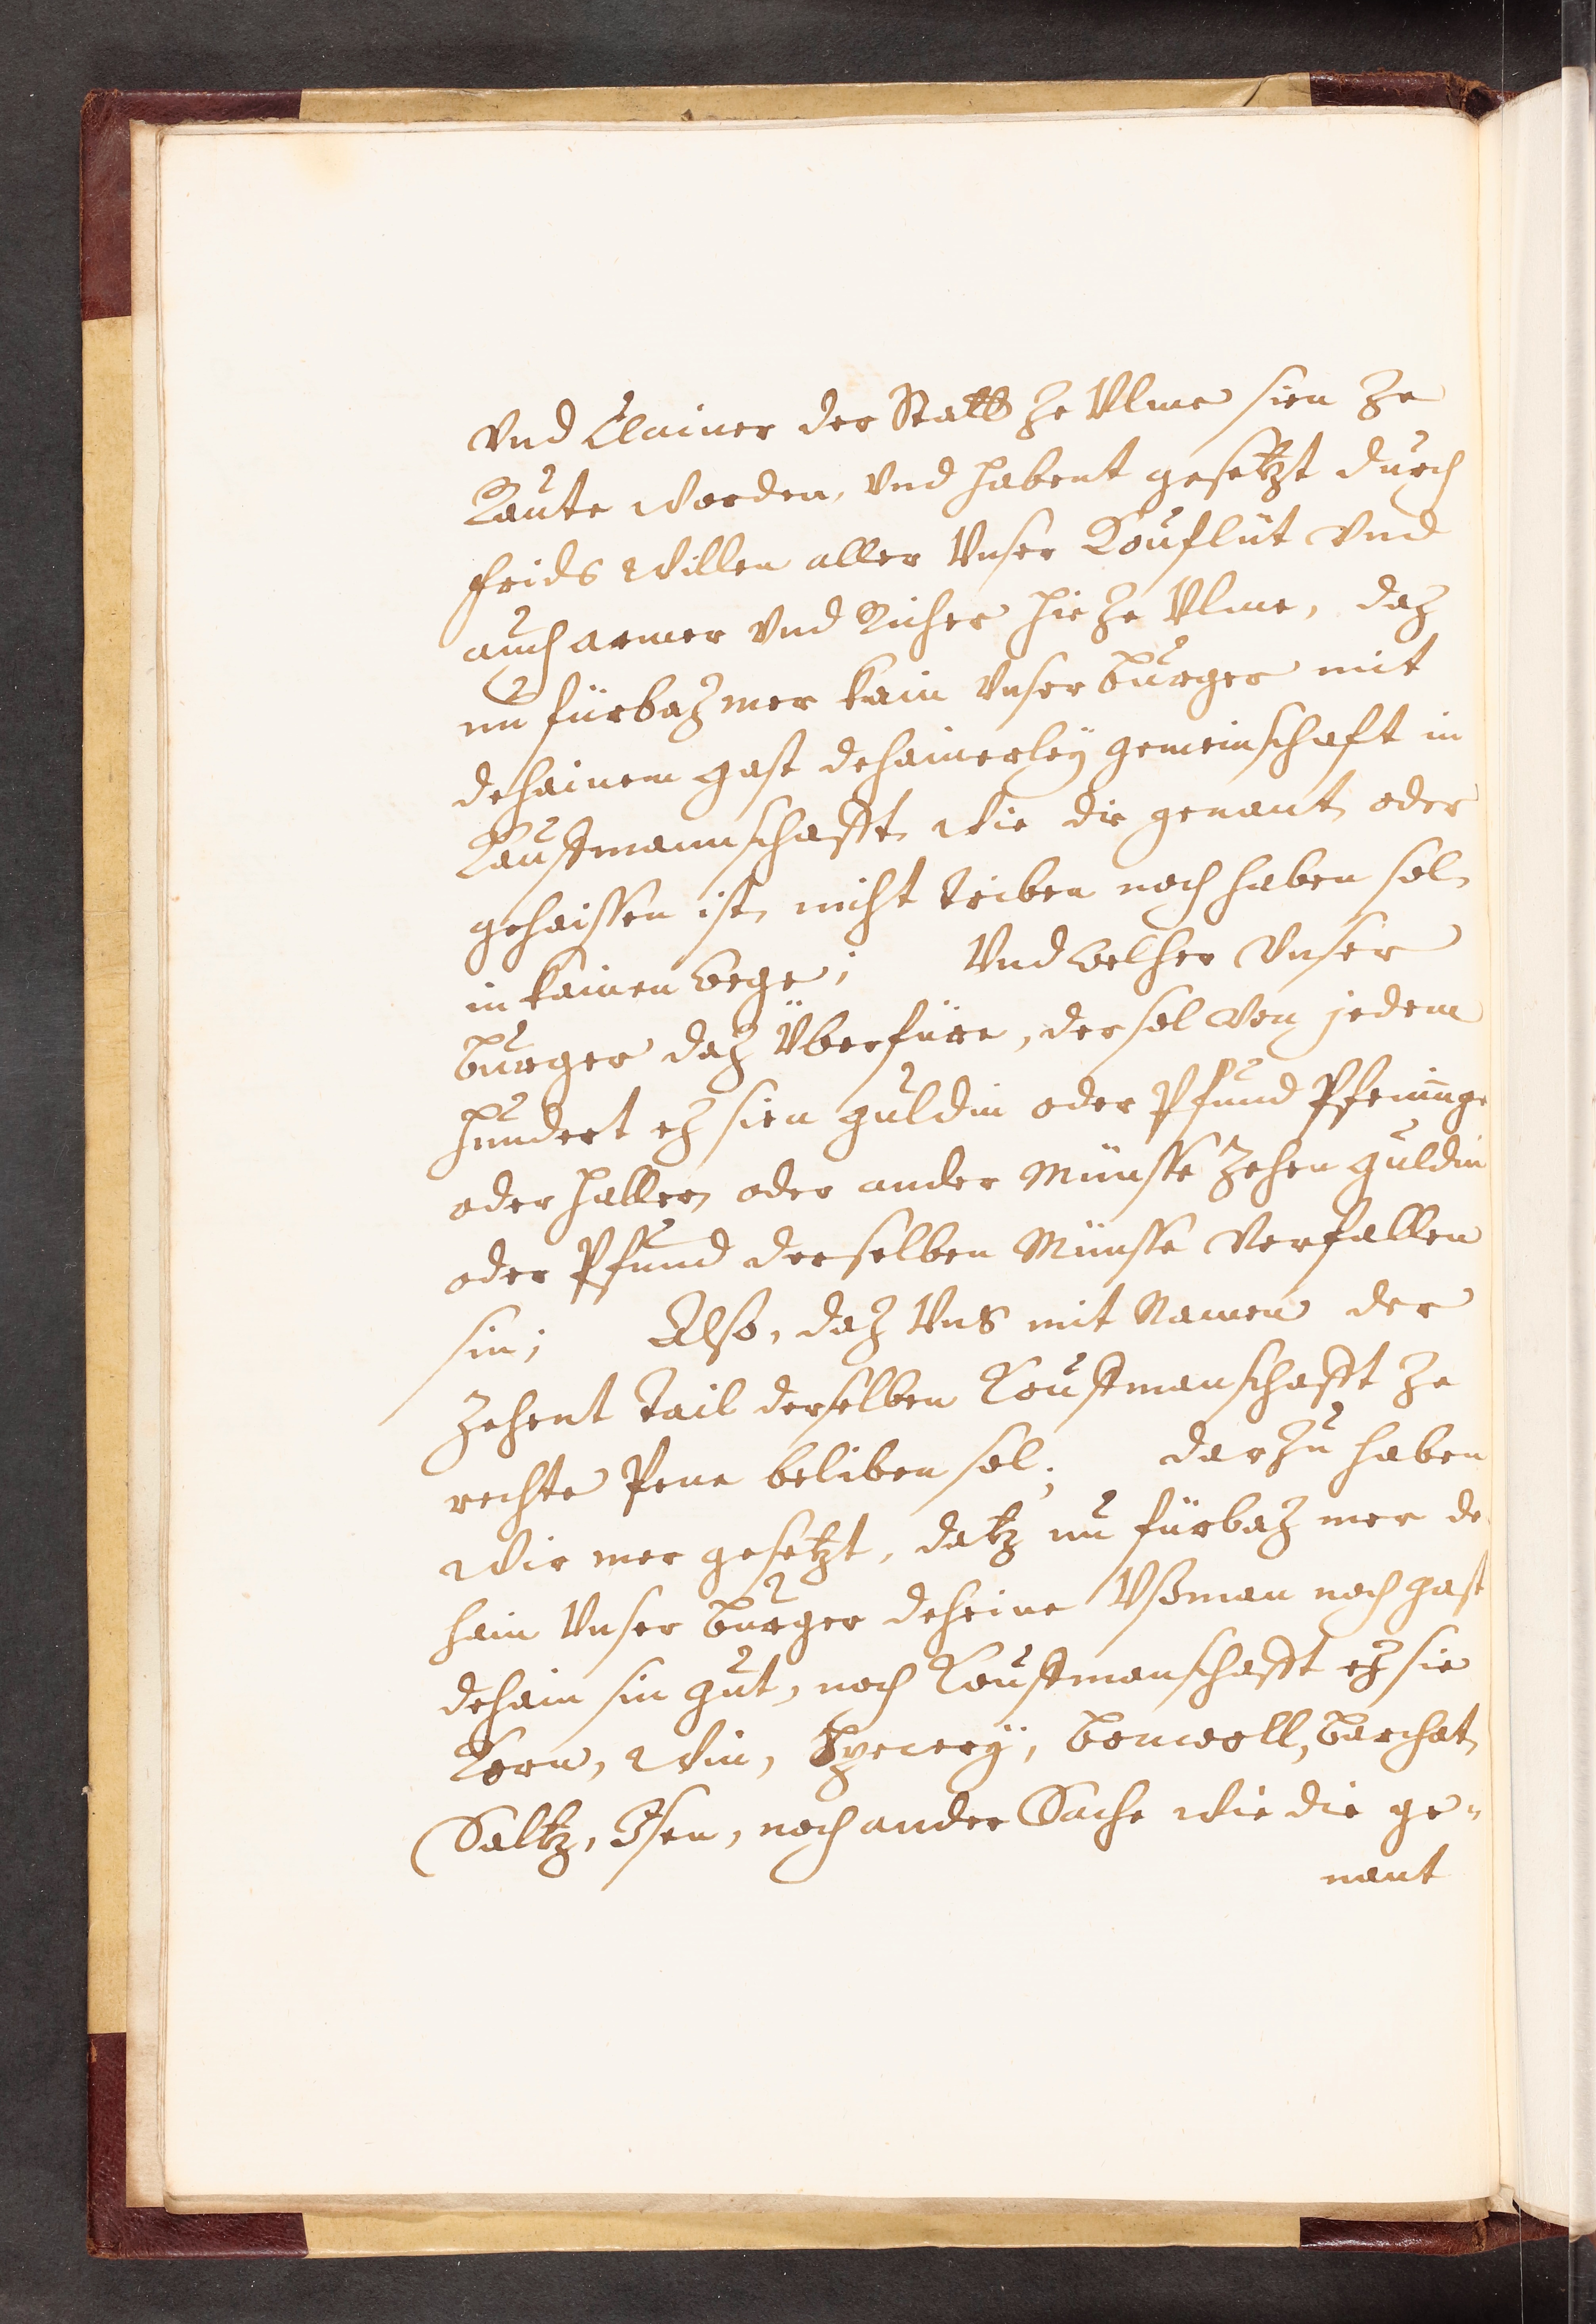 vnd Clainer der Statt ze Vlme sien ze
Raute worden, vnd habent gesetzt durch
frids willen aller Vnser Kouflüt vnd
auch armer vnd Richer hie ze Vlme, daz
nu fürbaz mer kain vnser burger mit
dehainem gast dehainerley gemeinschaft in
Kauffmannschafft wie die genant oder
gehaissen ist, nicht triben noch haben sol,
in kainen wege; Vnd welher vnser
burger daz Überfüre, der sol von jedem
hundert ez sien guldin oder Pfund Pfeninge
oder haller, oder ander Münsse Zehen guldin
oder Pfund derselben Münsse verfallen
sin; Also, daz Vns mit Namen der
Zehent Tail derselben Kouffmanschafft ze
rechte Pene beliben sol; darzu haben
wir mer gesetzt, datz nu fürbaz mer de
hain Vnser burger deheine Vßman noch gast
dehain sin gut, noch Kouffmanschafft ez sie
Korn, win, Specerÿ, bonwoll, barchat,
Saltz, Isen, noch ander Sache wie die ge-
nant